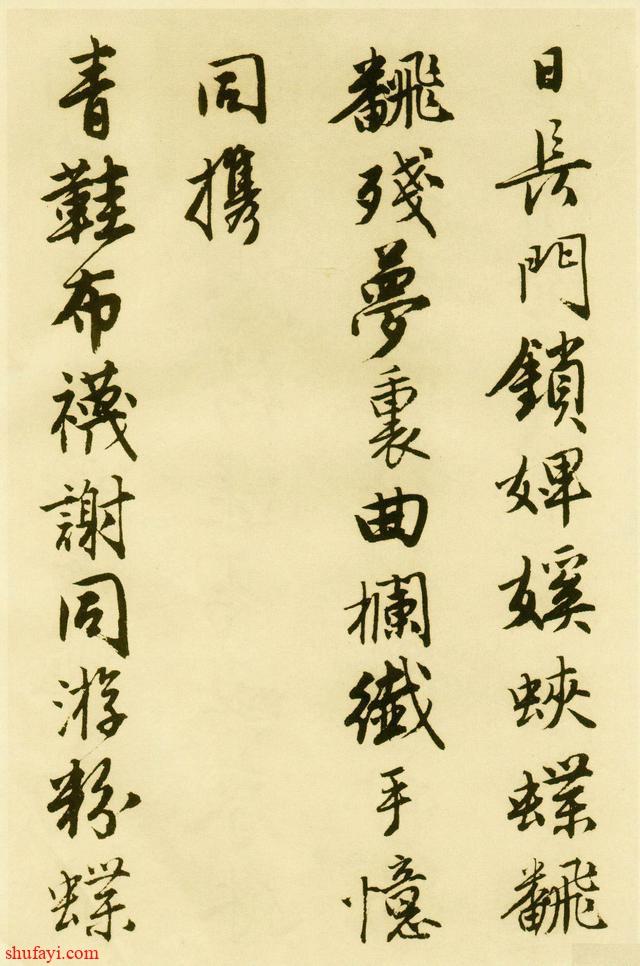 日長門鎖婢媛蛺蝶翻
翻殘夢裏曲欄纖手憶
同攜
青鞋布襪謝同游粉蝶
shufayi.com